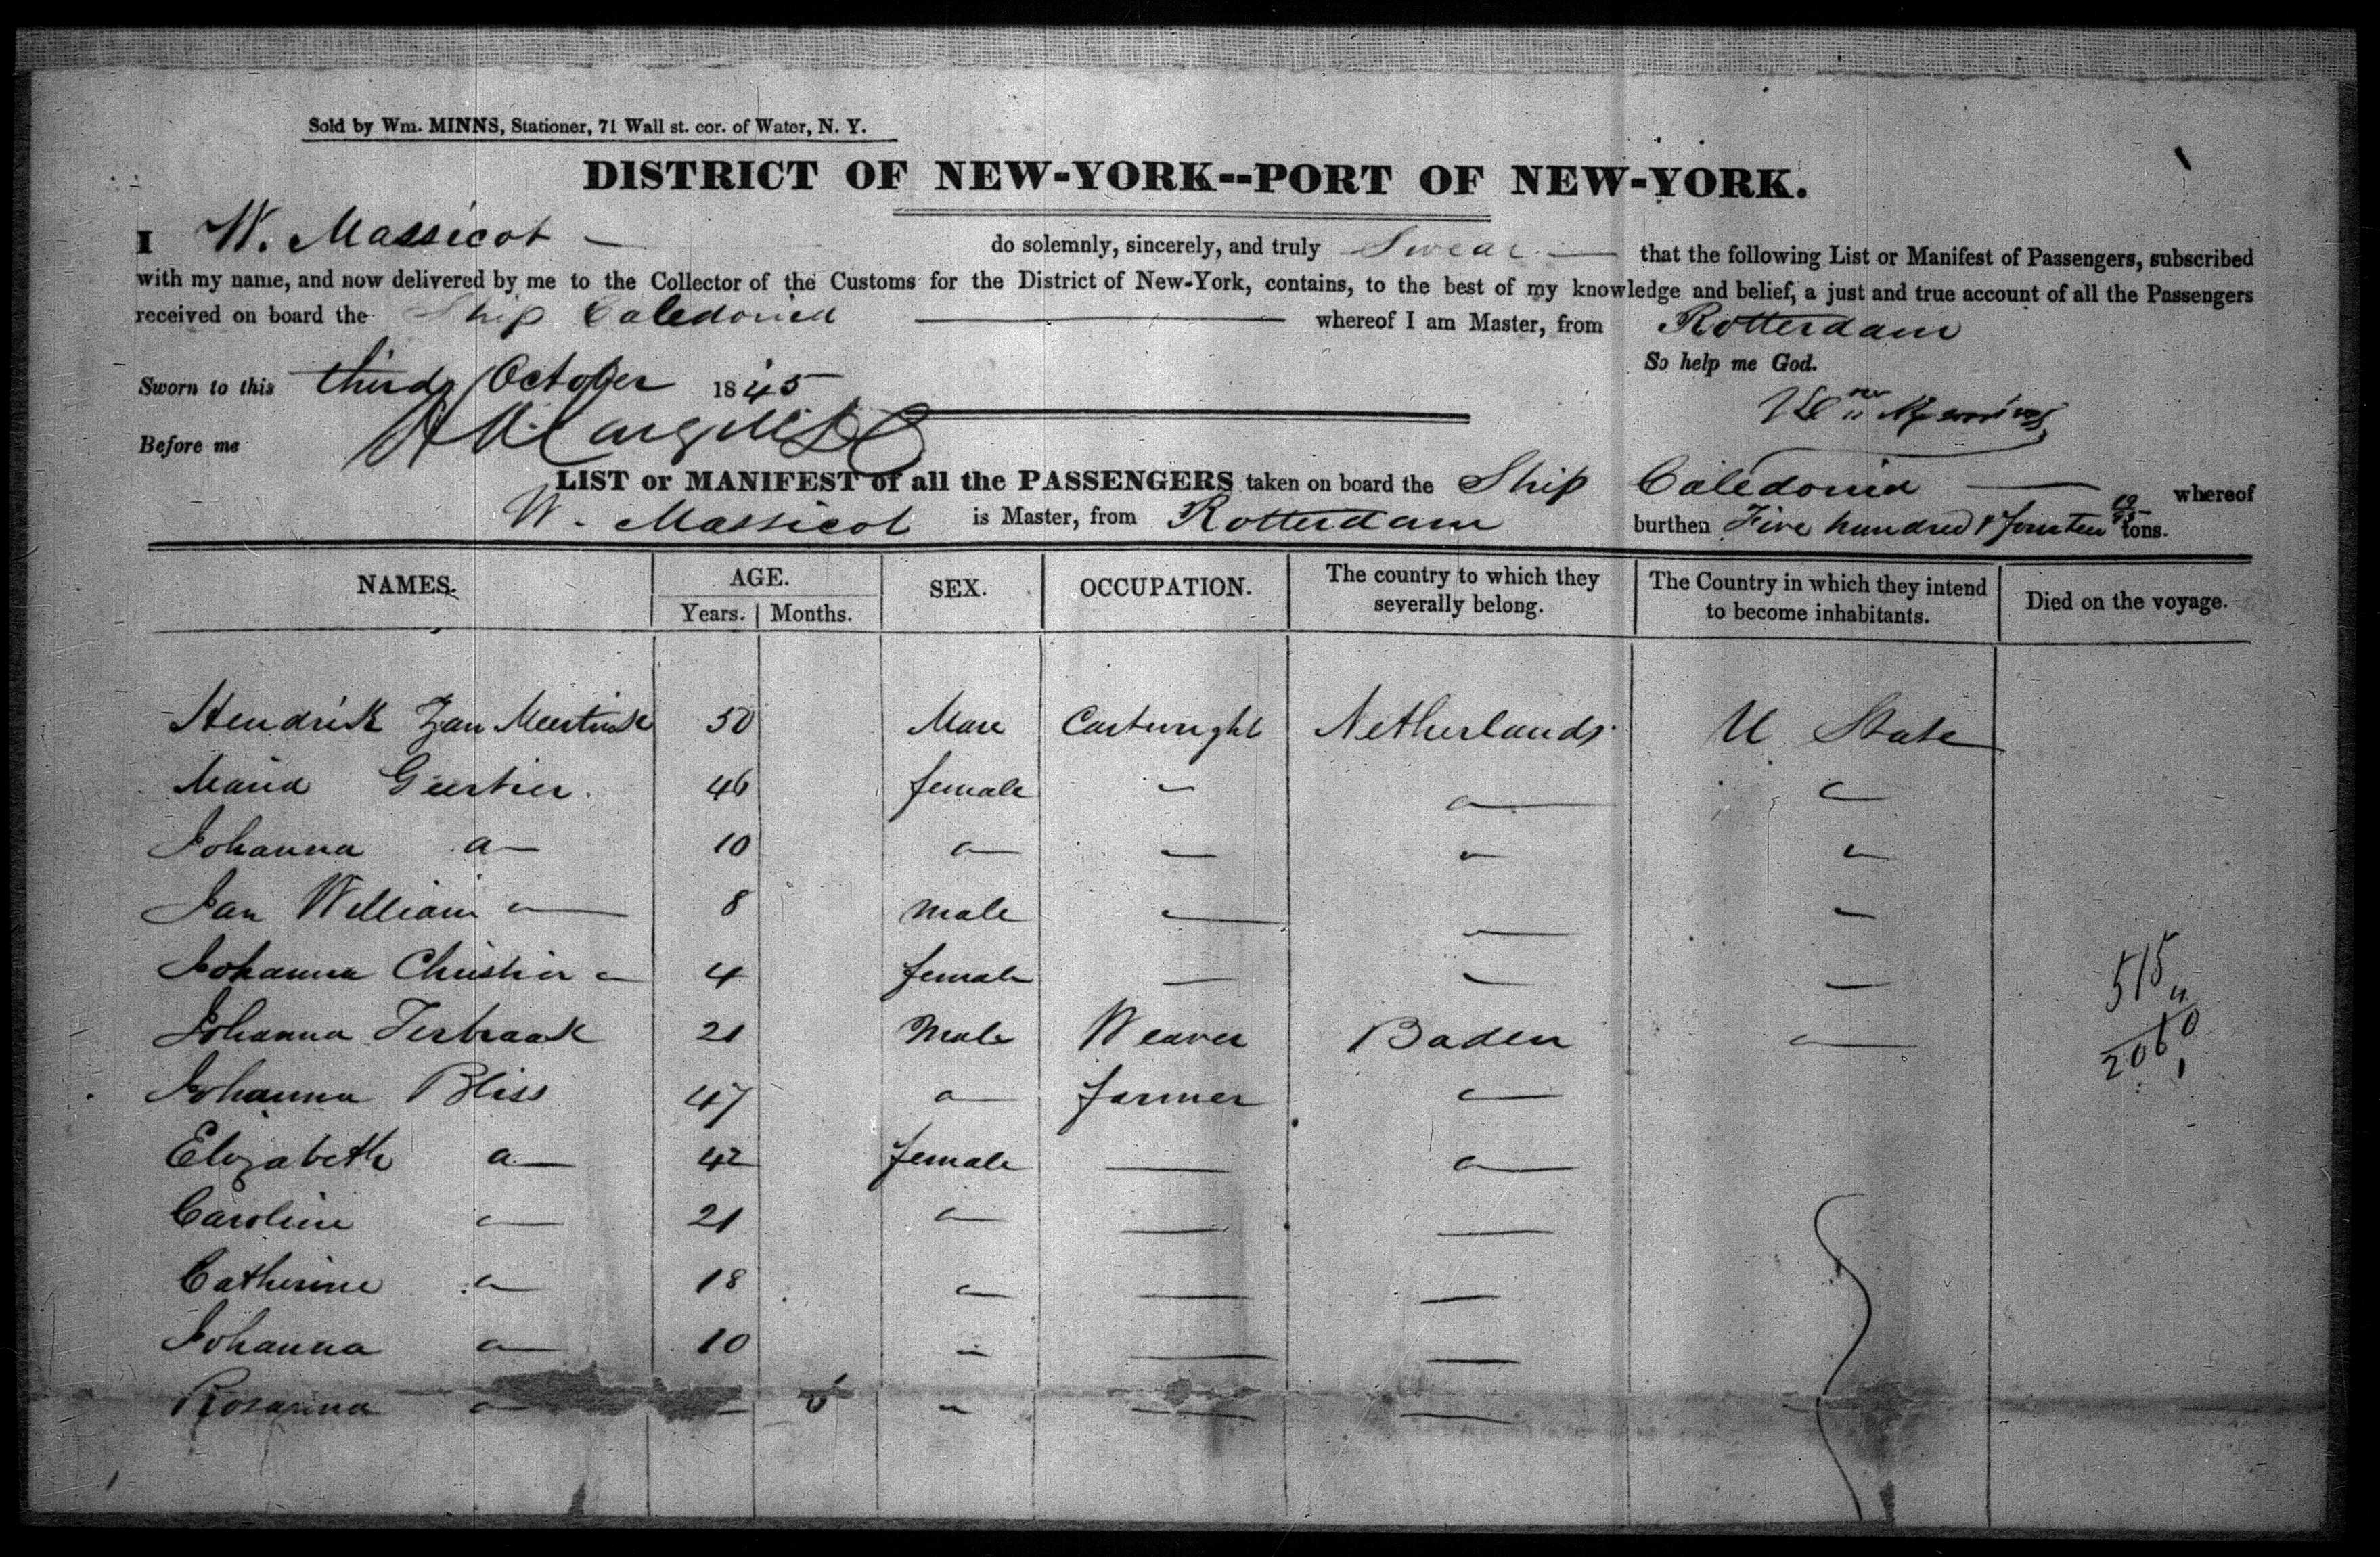 Sold by Wm. MINNS, Stationer, 71 Wall st. cor. of Water, N. Y.
DISTRICT OF NEW-YORK--PORT OF NEW-YORK.
I W. Massicot — do solemnly, sincerely, and truly Swear — that the following List or Manifest of Passengers, subscribed
with my name, and now delivered by me to the Collector of the Customs for the District of New-York, contains, to the best of my knowledge and belief, a just and true account of all the Passengers
received on board the Ship Caledonia — whereof I am Master, from Rotterdam
So help me God.
Sworn to this third October 1845
Before me
LIST or MANIFEST of all the PASSENGERS taken on board the Ship Caledonia — whereof
W. Massicot is Master, from Rotterdam burthen Five hundred & fourteen 19/95 tons.
NAMES. AGE. SEX. OCCUPATION. The country to which they severally belong. The Country in which they intend to become inhabitants. Died on the voyage.
Years. Months.
Hendrik Jan 50 Male Cartwright Netherlands U State
Maria 46 female
Johanna 10
Jan William 8 male
Johanna 4 female
Johanna Terbraak 21 Male Weaver Baden
Johanna Bliss 47 farmer
Elizabeth 42 female
Caroline 21
Catherine 18
Johanna 10
Rosanna
515
4
2060